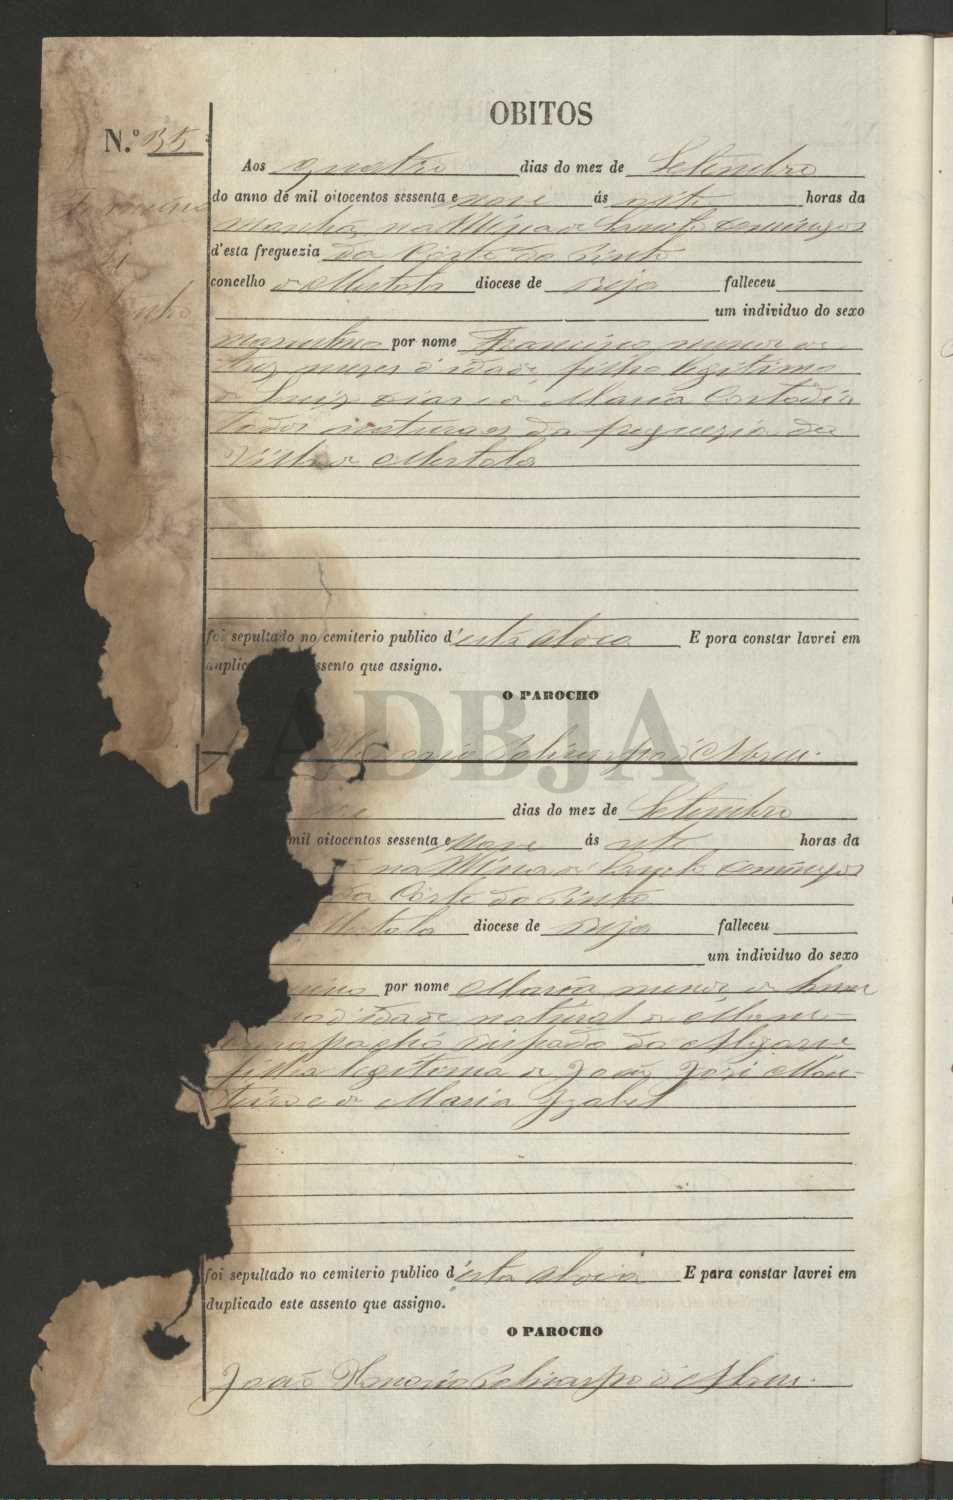 OBITOS
N.º 35
Aos quatro dias do mez de Setembro
do anno de mil oitocentos sessenta e nove ás sete horas da
manhã na Mina de Sam Domingos
d'esta freguezia da Corte do Pinto
concelho de Mertola diocese de Beja falleceu
um individuo do sexo
masculino por nome Francisco menor de
mezes d'idade, filho legitimo
de Luiz e de Maria Custodia
todos naturaes da freguezia da
Villa de Mertola
foi sepultado no cemiterio publico d'esta aldeia E pora constar lavrei em
duplic ssento que assigno.
O PAROCHO
Policarpo d'Abreu
ADBJA
dias do mez de Setembro
mil oitocentos sessenta e nove ás sete horas da
na Mina de Sam Domingos
da Corte do Pinto
Mertola diocese de Beja falleceu
um individuo do sexo
por nome Maria menor de hum
d'idade natural de
bispado do Algarve
filha legitima de João José Mon-
teiro e de Maria Izabel
foi sepultado no cemiterio publico d'esta aldeia E para constar lavrei em
duplicado este assento que assigno.
O PAROCHO
João Policarpo d'Abreu